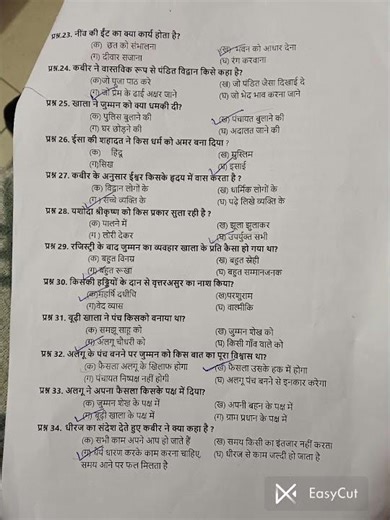 प्रश्न.23. नींव की ईंट का क्या कार्य होता है?
(क) छत को संभालना (ख) भवन को आधार देना
(ग) दीवार सजाना (घ) रंग करवाना
प्रश्न.24. कबीर ने वास्तविक रूप से पंडित विद्वान किसे कहा है?
(क)जो पूजा पाठ करे (ख) जो पंडित जैसा दिखाई दे
(ग) जो प्रेम के ढाई अक्षर जाने (घ) जो भेद भाव करना जाने
प्रश्न 25. खाला ने जुम्मन को क्या धमकी दी?
(क) पुलिस बुलाने की (ख) पंचायत बुलाने की
(ग) घर छोड़ने की (घ) अदालत जाने की
प्रश्न 26. ईसा की शहादत ने किस धर्म को अमर बना दिया ?
(क) हिंदू (ख) मुस्लिम
(ग)सिख (घ) इसाई
प्रश्न 27. कबीर के अनुसार ईश्वर किसके हृदय में वास करता है ?
(क) विद्वान लोगों के (ख) धार्मिक लोगों के
(ग) सच्चे व्यक्ति के (घ) पढ़े लिखे व्यक्ति के
प्रश्न 28. यशोदा श्रीकृष्ण को किस प्रकार सुला रही है ?
(क) पालने में (ख) झूला झुलाकर
(ग ) लोरी देकर (घ) उपर्युक्त सभी
प्रश्न 29. रजिस्ट्री के बाद जुम्मन का व्यवहार खाला के प्रति कैसा हो गया था?
(क) बहुत विनम्र (ख) बहुत स्नेही
(ग) बहुत रूखा (घ) बहुत सम्मानजनक
प्रश्न 30. किसकी हड्डियों के दान से वृत्तरअसुर का नाश किया?
(क)महर्षि दधीचि (ख)परशुराम
(ग)वेद व्यास (घ) वाल्मीकि
प्रश्न 31. बूढ़ी खाला ने पंच किसको बनाया था?
(क) समझू साहू को (ख) जुम्मन शेख को
(ग) अलगू चौधरी को (घ) किसी गाँव वाले को
प्रश्न 32. अलगू के पंच बनने पर जुम्मन को किस बात का पूरा विश्वास था?
(क) फैसला अलगू के खिलाफ होगा (ख) फैसला उसके हक में होगा
(ग) पंचायत निष्पक्ष नहीं होगी (घ) अलगू पंच बनने से इनकार करेगा
प्रश्न 33. अलगू ने अपना फैसला किसके पक्ष में दिया?
(क) जुम्मन शेख के पक्ष में (ख) अपनी बहन के पक्ष में
(ग) बूढ़ी खाला के पक्ष में (ग) ग्राम प्रधान के पक्ष में
प्रश्न 34. धीरज का संदेश देते हुए कबीर ने क्या कहा है ?
(क) सभी काम अपने आप हो जाते हैं (ख) समय किसी का इंतजार नहीं करता
(ग) धैर्य धारण करके काम करना चाहिए, (घ) धीरज से काम जल्दी हो जाता है
समय आने पर फल मिलता है
EasyCut